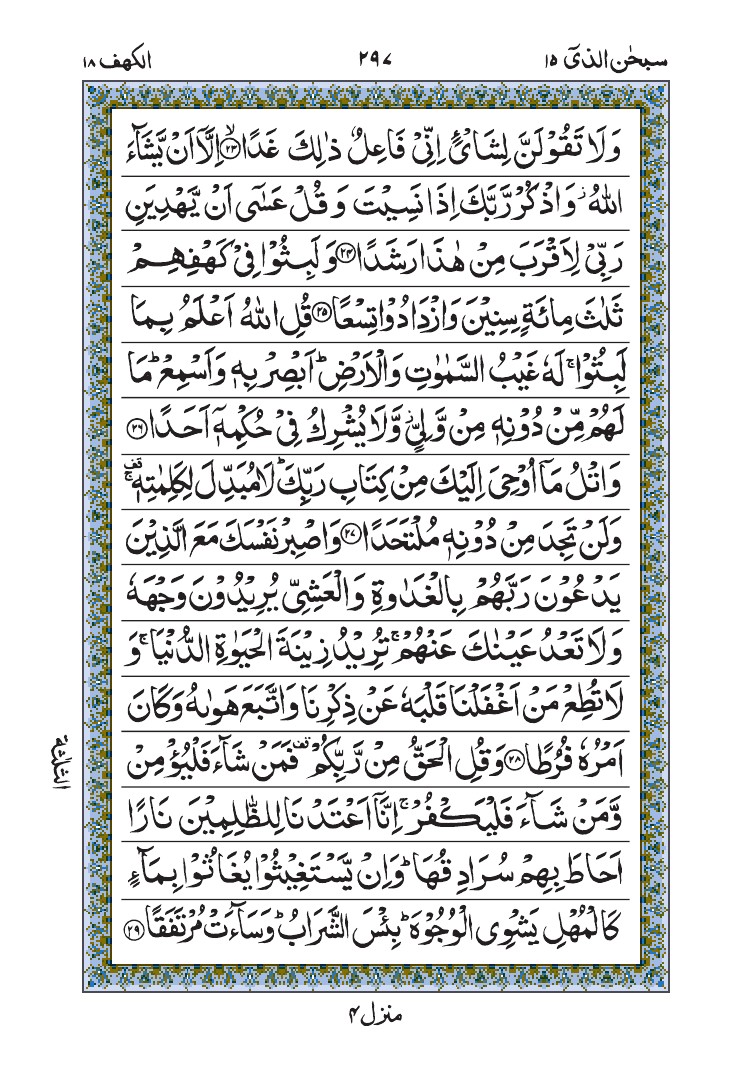 سبحٰن الذیٓ ۱۵
۲۹۷
الکھف ۱۸
وَلَا تَقُوۡلَنَّ لِشَایۡءٍ اِنِّیۡ فَاعِلٌ ذٰلِكَ غَدًا ﴿۲۳﴾ۙ اِلَّاۤ اَنۡ یَّشَآءَ
اللّٰهُ ۫ وَاذۡكُرۡ رَّبَّكَ اِذَا نَسِیۡتَ وَ قُلۡ عَسٰۤی اَنۡ یَّهۡدِیَنِ
رَبِّیۡ لِاَقۡرَبَ مِنۡ هٰذَا رَشَدًا ﴿۲۴﴾ وَ لَبِثُوۡا فِیۡ كَهۡفِهِمۡ
ثَلٰثَ مِائَةٍ سِنِیۡنَ وَازۡدَادُوۡا تِسۡعًا ﴿۲۵﴾ قُلِ اللّٰهُ اَعۡلَمُ بِمَا
لَبِثُوۡا ۚ لَهٗ غَیۡبُ السَّمٰوٰتِ وَالۡاَرۡضِ ؕ اَبۡصِرۡ بِهٖ وَاَسۡمِعۡ ؕ مَا
لَهُمۡ مِّنۡ دُوۡنِهٖ مِنۡ وَّلِیٍّ ۫ وَّلَا یُشۡرِكُ فِیۡ حُكۡمِهٖۤ اَحَدًا ﴿۲۶﴾
وَاتۡلُ مَاۤ اُوۡحِیَ اِلَیۡكَ مِنۡ كِتَابِ رَبِّكَ ؕ لَا مُبَدِّلَ لِكَلِمٰتِهٖ ۚ۟ قف
وَلَنۡ تَجِدَ مِنۡ دُوۡنِهٖ مُلۡتَحَدًا ﴿۲۷﴾ وَاصۡبِرۡ نَفۡسَكَ مَعَ الَّذِیۡنَ
یَدۡعُوۡنَ رَبَّهُمۡ بِالۡغَدٰوةِ وَالۡعَشِیِّ یُرِیۡدُوۡنَ وَجۡهَهٗ
وَلَا تَعۡدُ عَیۡنٰكَ عَنۡهُمۡ ۚ تُرِیۡدُ زِیۡنَةَ الۡحَیٰوةِ الدُّنۡیَا ۚ وَ
لَا تُطِعۡ مَنۡ اَغۡفَلۡنَا قَلۡبَهٗ عَنۡ ذِكۡرِنَا وَاتَّبَعَ هَوٰىهُ وَكَانَ
اَمۡرُهٗ فُرُطًا ﴿۲۸﴾ وَقُلِ الۡحَقُّ مِنۡ رَّبِّكُمۡ ۟ قف فَمَنۡ شَآءَ فَلۡیُؤۡمِنۡ
وَّمَنۡ شَآءَ فَلۡیَكۡفُرۡ ۚ اِنَّاۤ اَعۡتَدۡنَا لِلظّٰلِمِیۡنَ نَارًا
اَحَاطَ بِهِمۡ سُرَادِقُهَا ؕ وَاِنۡ یَّسۡتَغِیۡثُوۡا یُغَاثُوۡا بِمَآءٍ
كَالۡمُهۡلِ یَشۡوِی الۡوُجُوۡهَ ؕ بِئۡسَ الشَّرَابُ ؕ وَسَآءَتۡ مُرۡتَفَقًا ﴿۲۹﴾
الثلٰثة
منزل ۴